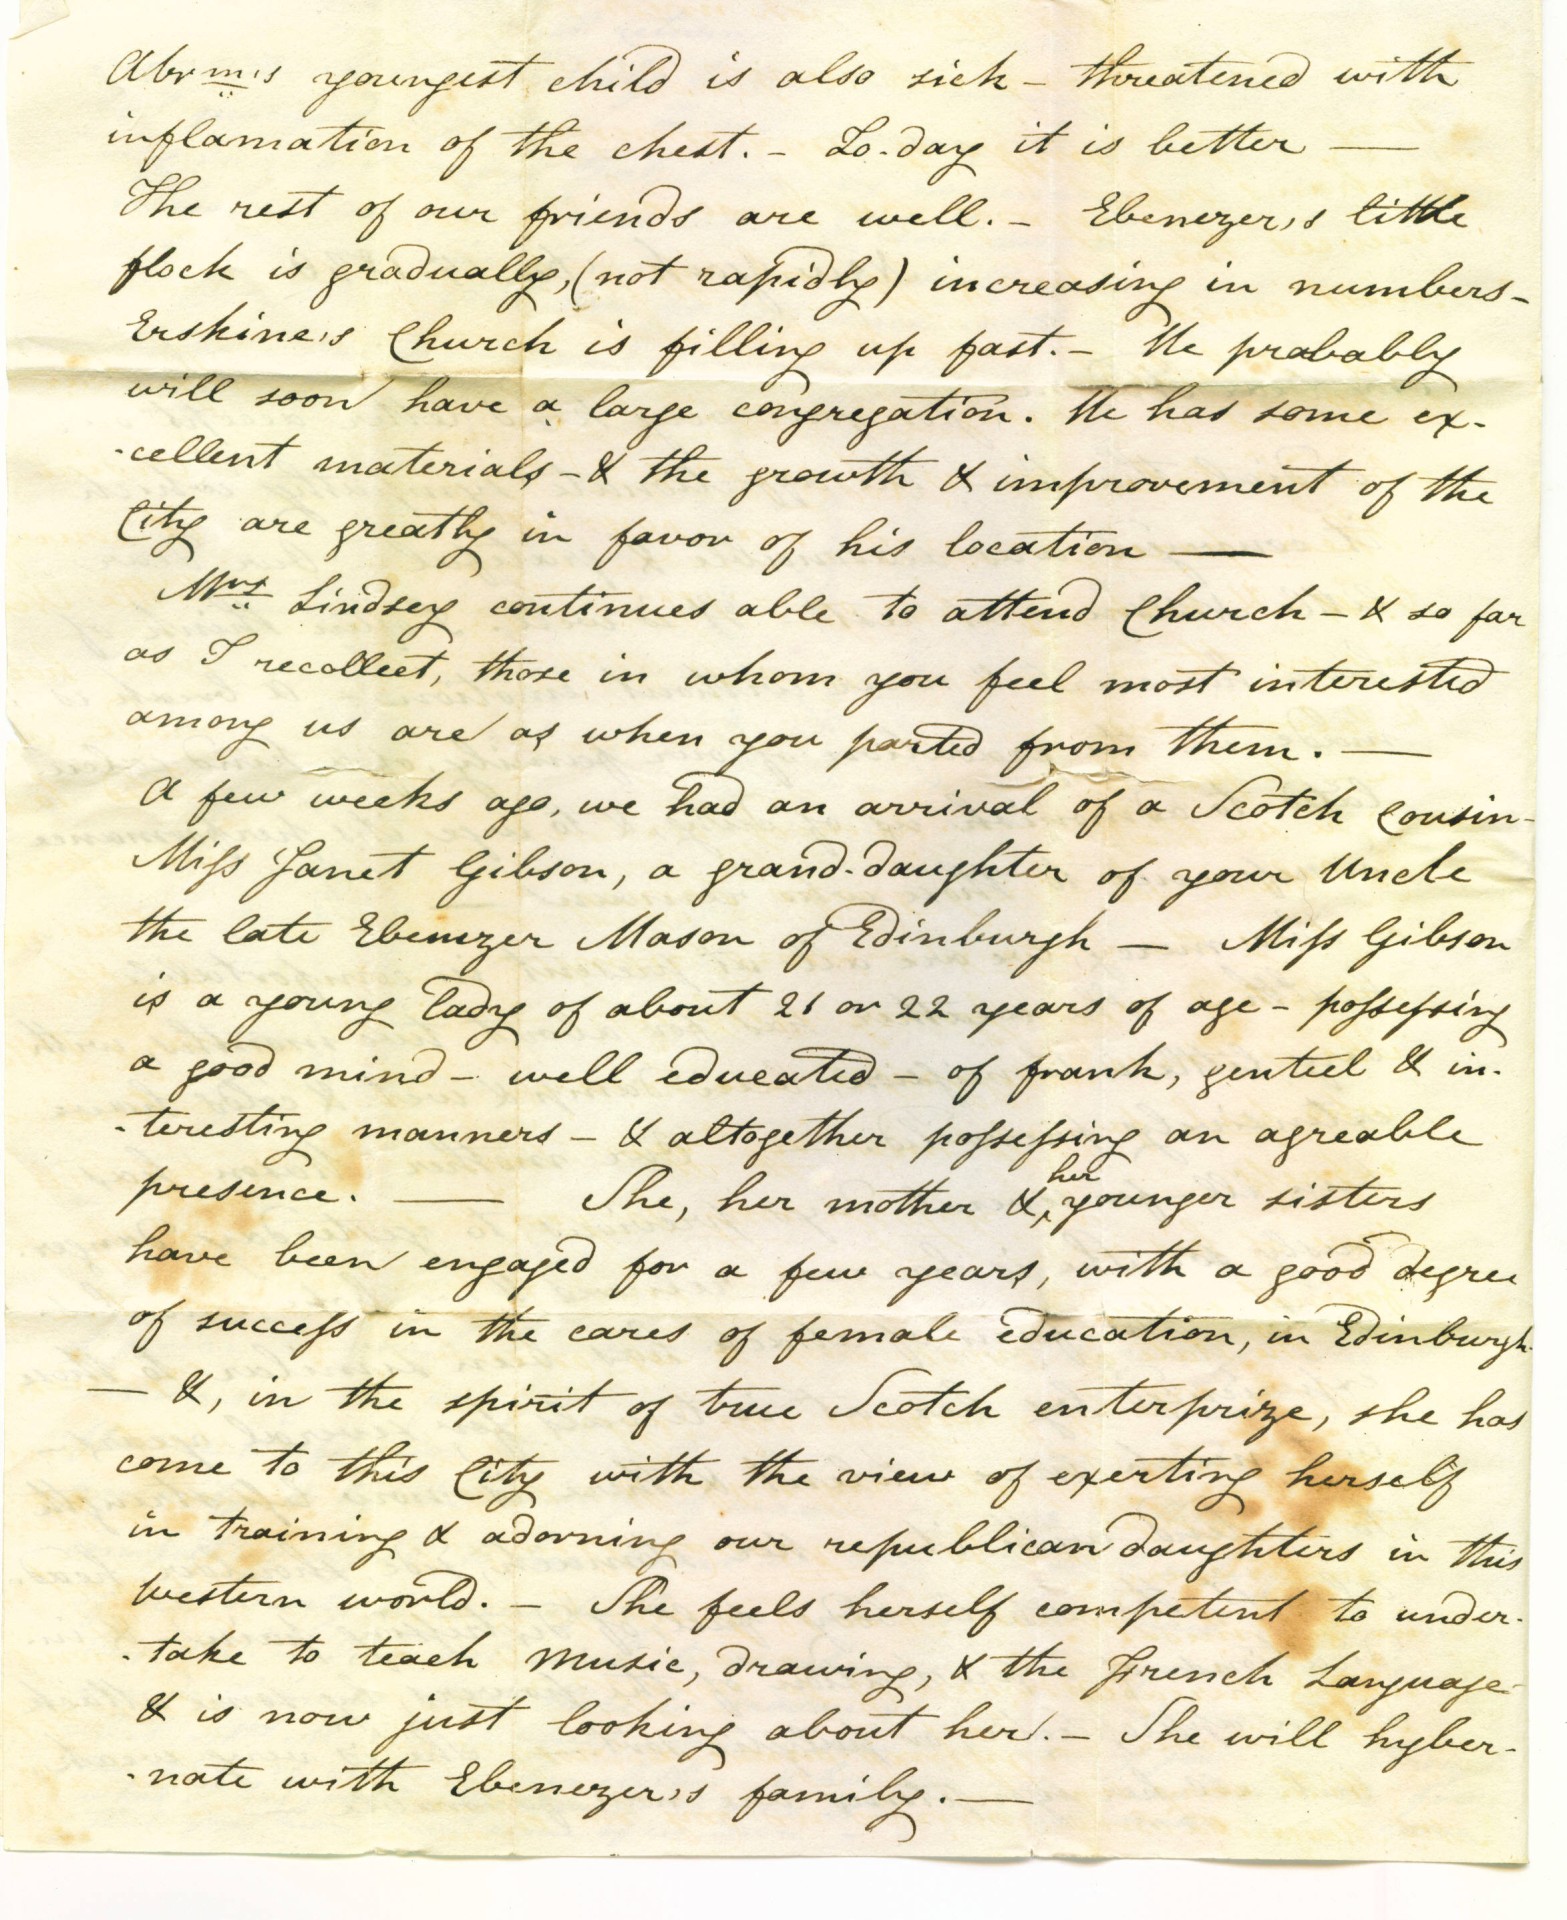 Abrm's youngest child is also sick – threatened with
inflamation of the chest. – To-day it is better —
The rest of our friends are well. – Ebenezer's little
flock is gradually, (not rapidly) increasing in numbers –
Erskine's Church is filling up fast. – He probably
will soon have a large congregation. He has some ex-
-cellent materials – & the growth & improvement of the
City are greatly in favor of his location —
Mrs Lindsey continues able to attend Church – & so far
as I recollect, those in whom you feel most interested
among us are as when you parted from them. —
A few weeks ago, we had an arrival of a Scotch Cousin –
Miss Janet Gibson, a grand-daughter of your Uncle
the late Ebenezer Mason of Edinburgh — Miss Gibson
is a young lady of about 21 or 22 years of age – possessing
a good mind – well educated – of frank, genteel & in-
-teresting manners – & altogether possessing an agreable
presence. — She, her mother & her younger sisters
have been engaged for a few years, with a good degree
of success in the cares of female education, in Edinburgh –
— &, in the spirit of true Scotch enterprize, she has
come to this City with the view of exerting herself
in training & adorning our republican daughters in this
Western world. – She feels herself competent to under-
-take to teach Music, drawing, & the French Language –
& is now just looking about her. – She will hyber-
-nate with Ebenezer's family. —